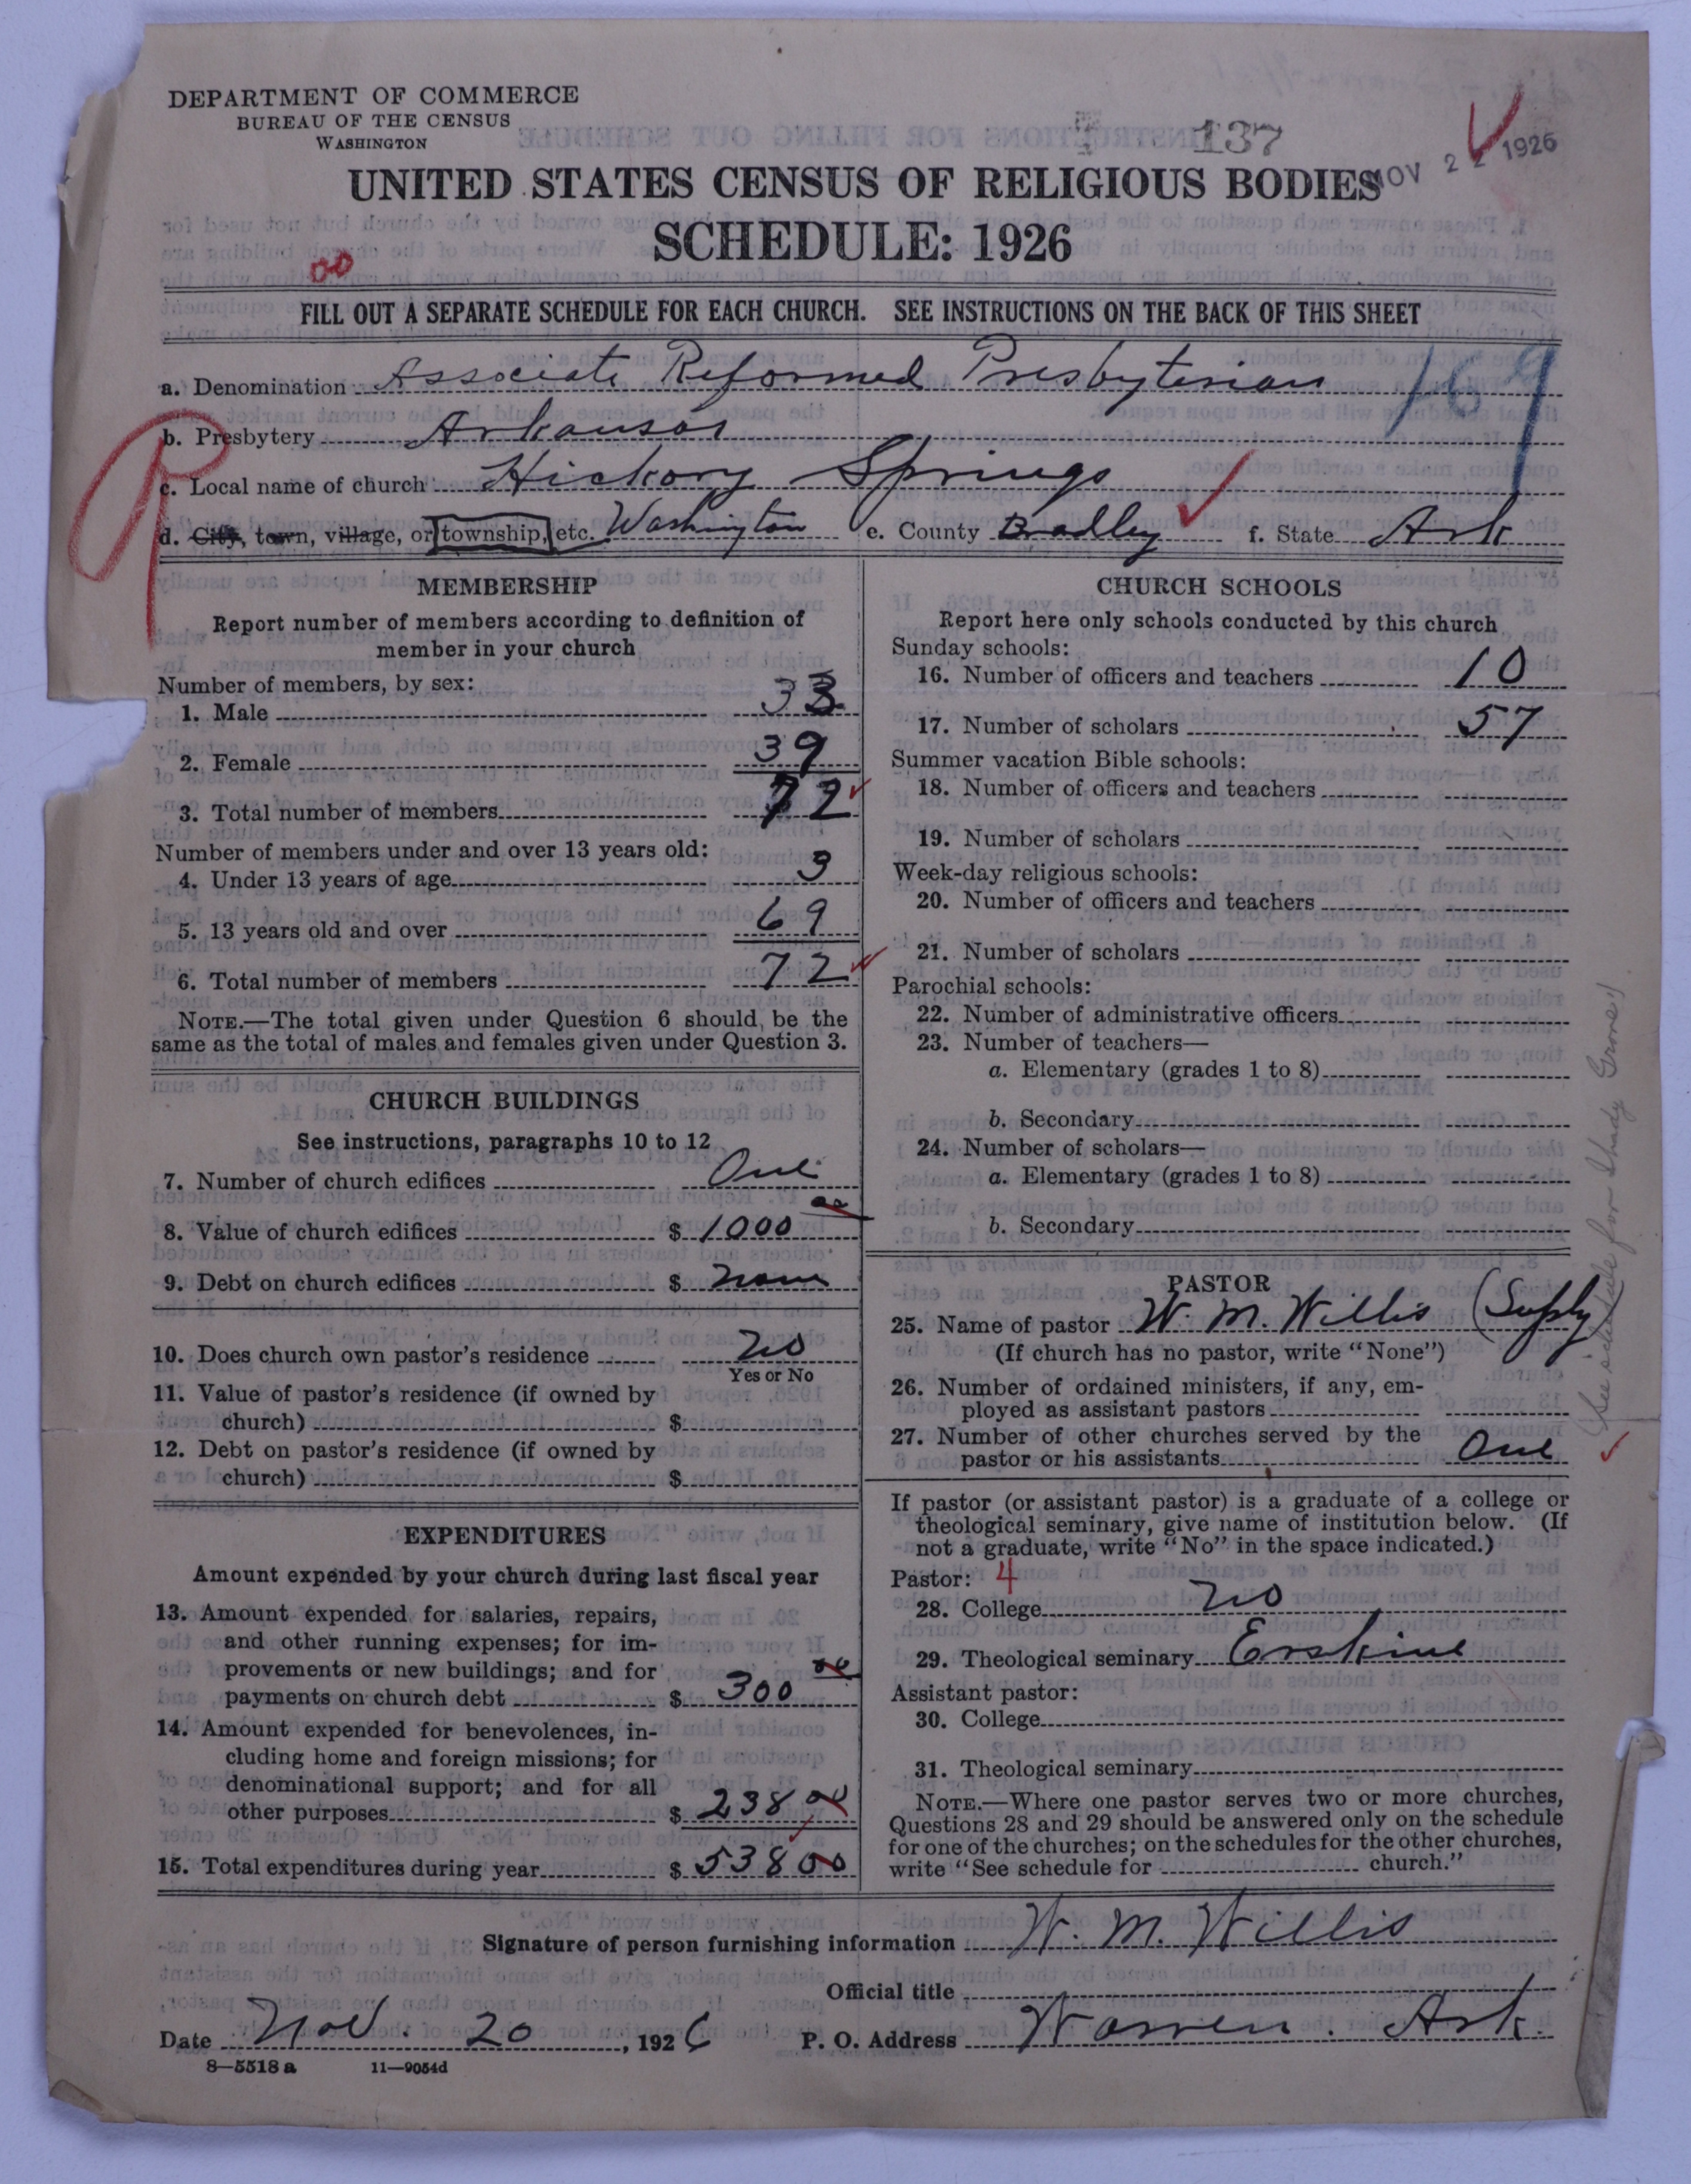 DEPARTMENT OF COMMERCE
BUREAU OF THE CENSUS
WASHINGTON
137
NOV 22 1926
UNITED STATES CENSUS OF RELIGIOUS BODIES
SCHEDULE: 1926
00
FILL OUT A SEPARATE SCHEDULE FOR EACH CHURCH. SEE INSTRUCTIONS ON THE BACK OF THIS SHEET
a. Denomination Associate Reformed Presbyterian
b. Presbytery Arkansas
c. Local name of church Hickory Springs
d. City, town, village, or township, etc. Washington e. County Bradley f. State Ark
MEMBERSHIP
Report number of members according to definition of
member in your church
Number of members, by sex:
1. Male 33
2. Female 39
3. Total number of members 72
Number of members under and over 13 years old:
4. Under 13 years of age 3
5. 13 years old and over 69
6. Total number of members 72
NOTE.—The total given under Question 6 should be the
same as the total of males and females given under Question 3.
CHURCH BUILDINGS
See instructions, paragraphs 10 to 12
7. Number of church edifices One
8. Value of church edifices $ 1000 00
9. Debt on church edifices $ none
10. Does church own pastor's residence no
Yes or No
11. Value of pastor's residence (if owned by
church) $
12. Debt on pastor's residence (if owned by
church) $
EXPENDITURES
Amount expended by your church during last fiscal year
13. Amount expended for salaries, repairs,
and other running expenses; for im-
provements or new buildings; and for
payments on church debt $ 300 00
14. Amount expended for benevolences, in-
cluding home and foreign missions; for
denominational support; and for all
other purposes $ 238 00
15. Total expenditures during year $ 538 00
CHURCH SCHOOLS
Report here only schools conducted by this church
Sunday schools:
16. Number of officers and teachers 10
17. Number of scholars 57
Summer vacation Bible schools:
18. Number of officers and teachers
19. Number of scholars
Week-day religious schools:
20. Number of officers and teachers
21. Number of scholars
Parochial schools:
22. Number of administrative officers
23. Number of teachers—
a. Elementary (grades 1 to 8)
b. Secondary
24. Number of scholars—
a. Elementary (grades 1 to 8)
b. Secondary
PASTOR
25. Name of pastor W. M. Willis (Supply)
(If church has no pastor, write "None")
26. Number of ordained ministers, if any, em-
ployed as assistant pastors
27. Number of other churches served by the
pastor or his assistants One
(See schedule for Shady Grove)
If pastor (or assistant pastor) is a graduate of a college or
theological seminary, give name of institution below. (If
not a graduate, write "No" in the space indicated.)
Pastor: 4
28. College no
29. Theological seminary Erskine
Assistant pastor:
30. College
31. Theological seminary
NOTE.—Where one pastor serves two or more churches,
Questions 28 and 29 should be answered only on the schedule
for one of the churches; on the schedules for the other churches,
write "See schedule for church."
Signature of person furnishing information W. M. Willis
Official title
Date Nov. 20, 1926 P. O. Address Warren. Ark.
8—5518 a 11—9054d